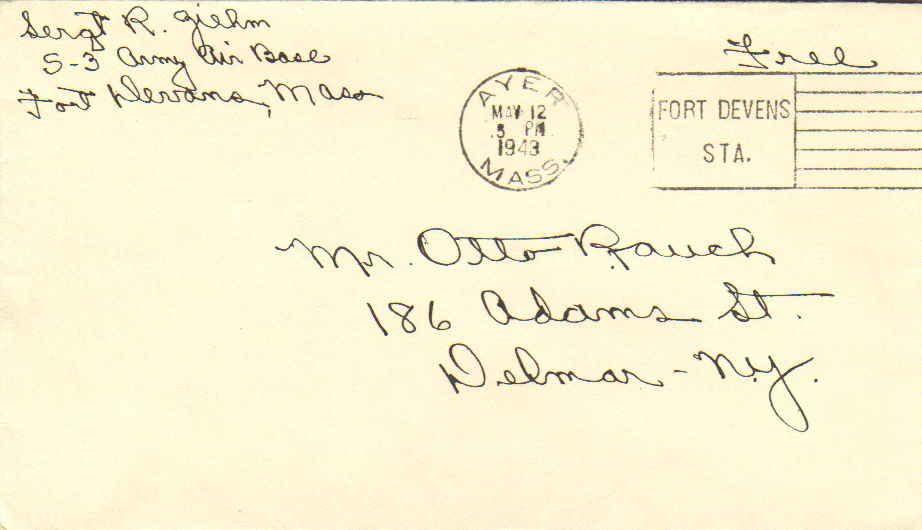 Sergt R. Giehm
S-3 Army Air Base
Fort Devans, Mass
Free
AYER
MAY 12
5 PM
1943
MASS.
FORT DEVENS
STA.
Mr. Otto Rauch
186 Adams St.
Delmar - N.Y.